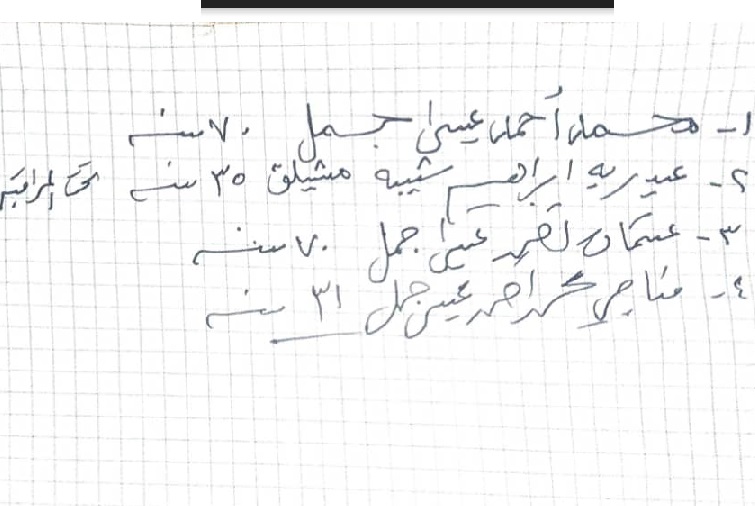 ١- محمد أحمد عيسى جمل ٧٠ سنه
٢- عبدربه ابراهيم شيبه مشيلق ٣٥ سنه تحت المراقبه
٣- عثمان نصر عيسى جمل ٧٠ سنه
٤- مناجي محمد احمد عيسى جمل ٣١ سنه